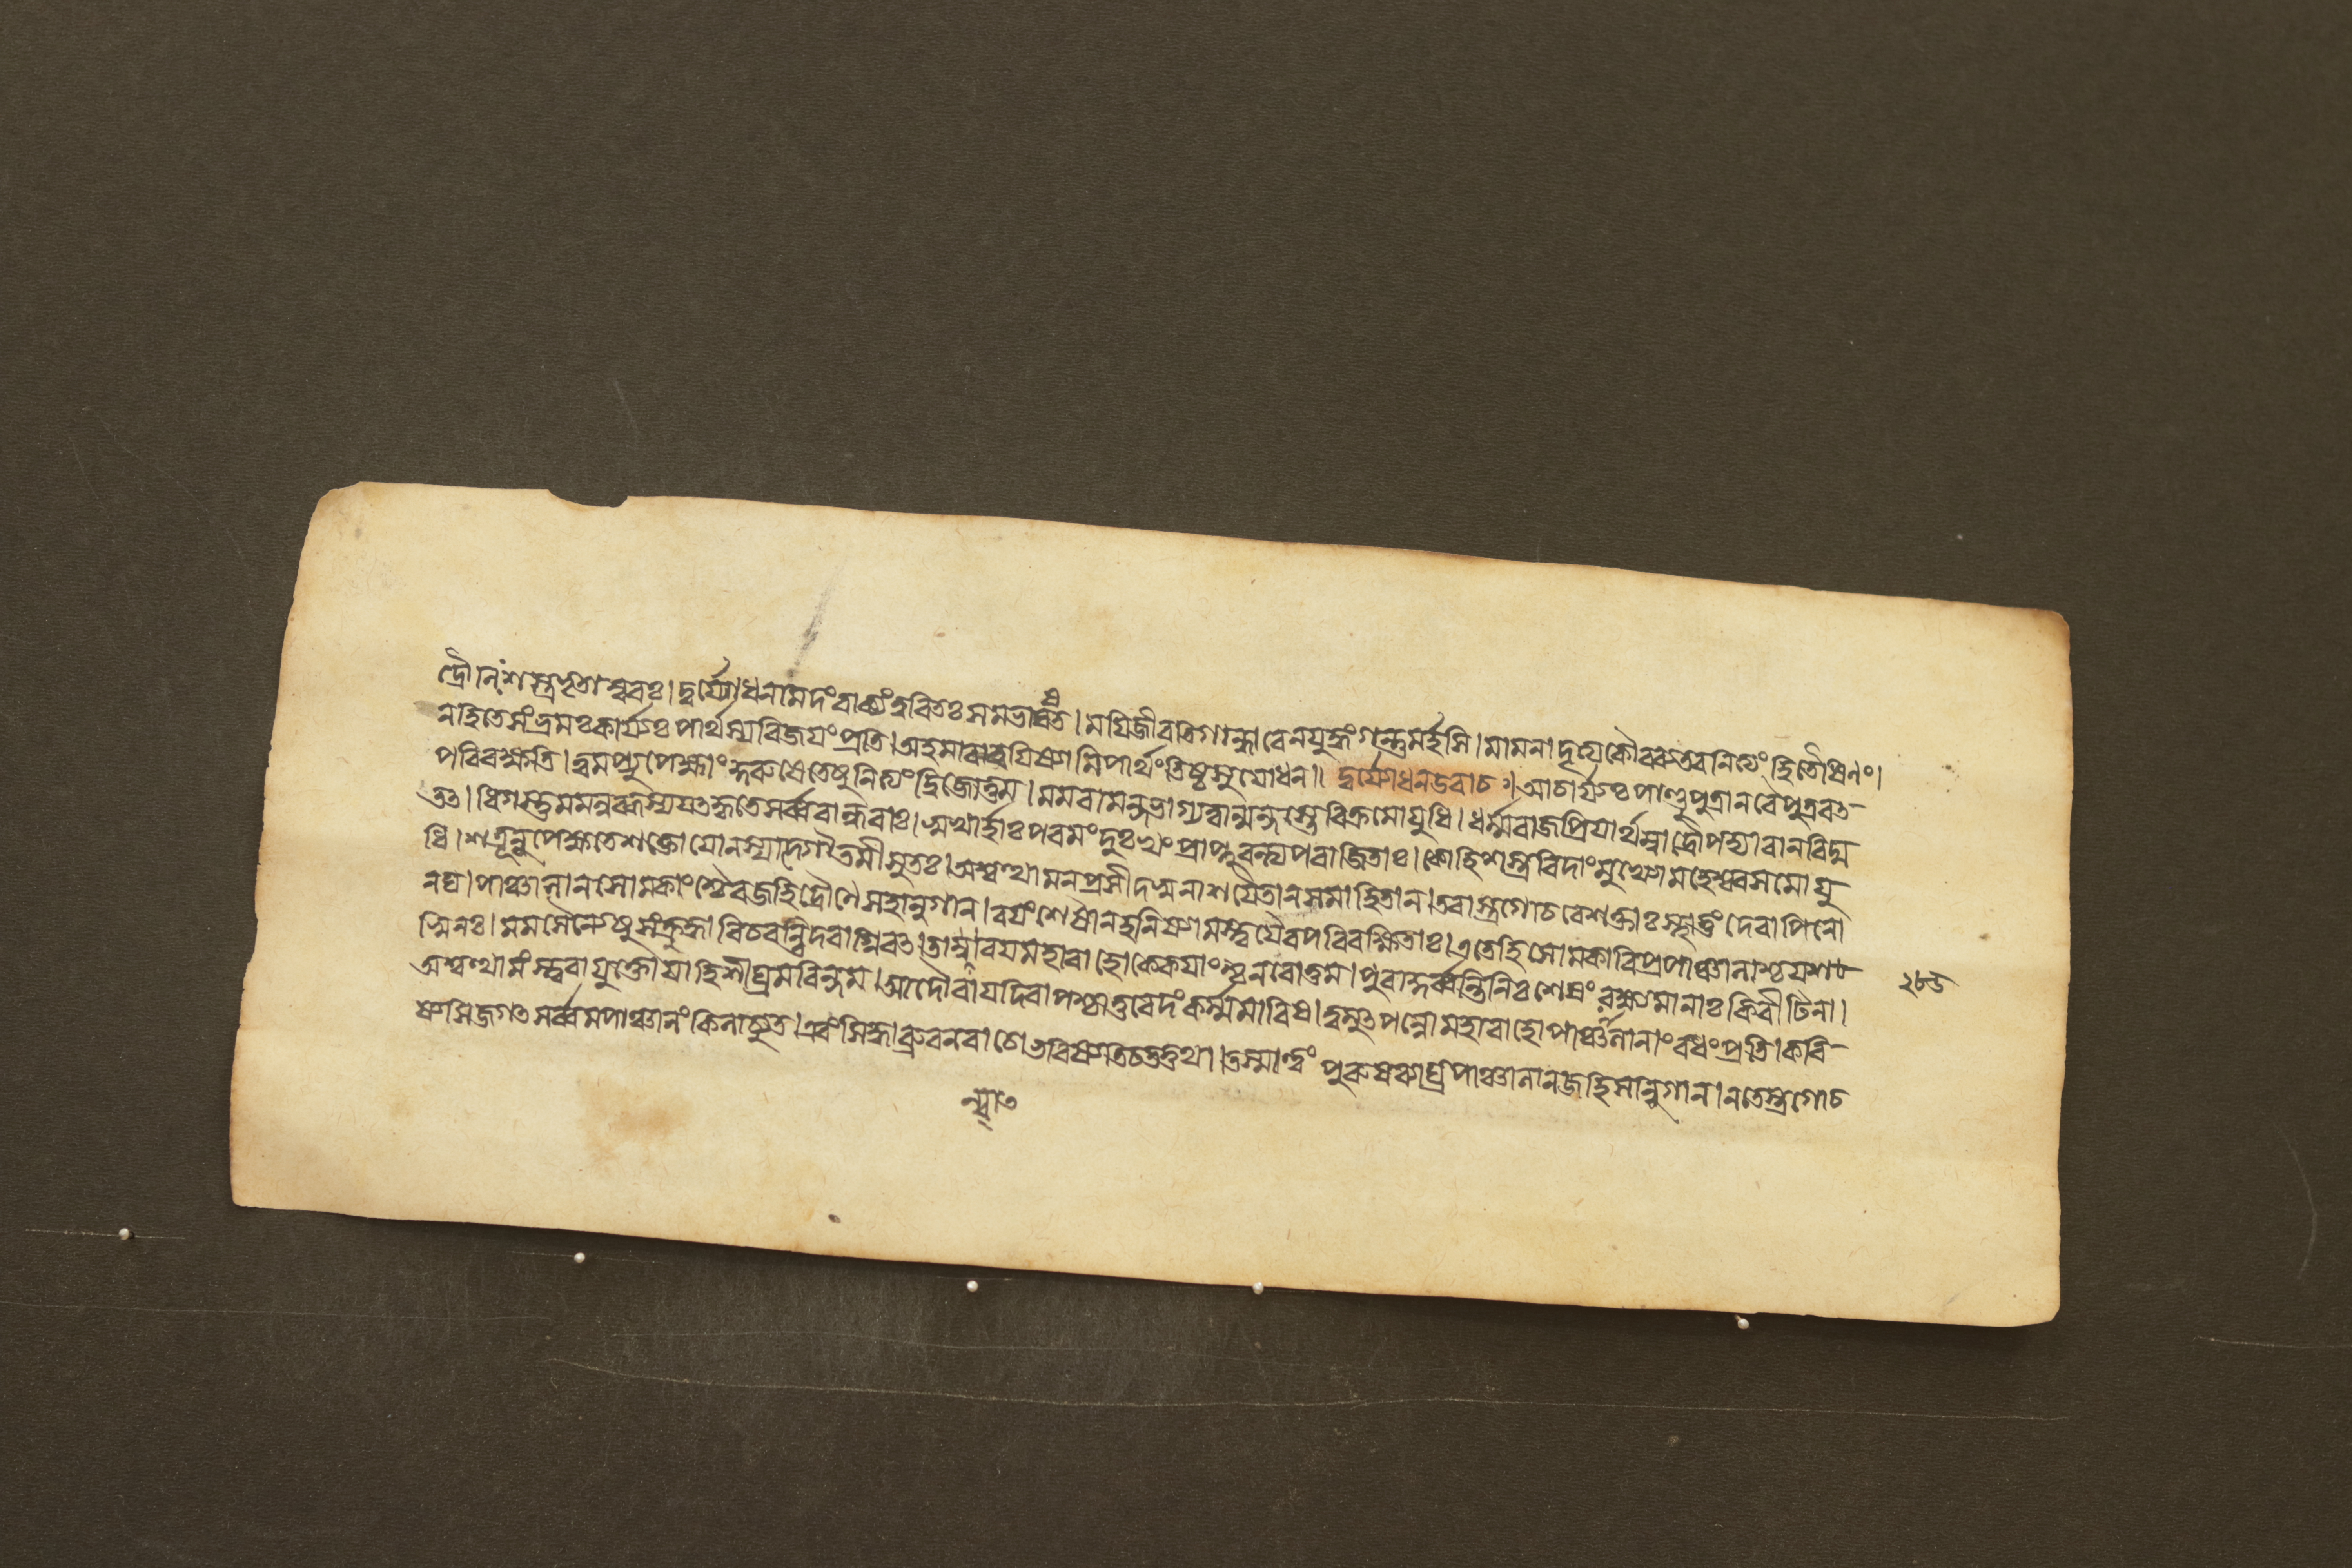 দ্রৌনিংশস্ত্রভৃতাম্বরঃ। দুর্য্যোধনমিদংবাক্যংত্বরিতঃসমভাষত। ময়িজীবতিগান্ধারেনযুদ্ধংগন্তুমর্হসি। মামনাদৃত্যকৌরব্যতবনিত্যংহিতৈষিণং।
নহিতেসংভ্রমঃকার্য্যঃপার্থস্যবিজয়ংপ্রতি। অহমাবারয়িষ্যামিপার্থংতিষ্ঠসুযোধন॥ দুর্য্যোধনউবাচঃ। আচার্য্যঃপাণ্ডুপুত্রানবৈপুত্রবৎ
পরিরক্ষতি। ত্বমপ্যুপেক্ষাংকুরুষেতেষুনিত্যংদ্বিজোত্তম। মমবামন্দভাগ্যত্বান্মন্দস্তেবিক্রমোযুধি। ধর্ম্মরাজপ্রিয়ার্থম্বাদ্রৌপদ্যাবানবিদ্ম
তৎ। ধিগস্তুমমলুব্ধস্যযৎকৃতেসর্ব্ববান্ধবাঃ। সুখার্হাঃপরমংদুঃখংপ্রাপ্নুবন্ত্যপরাজিতাঃ। কোহিশস্ত্রবিদাংমুখ্যোমহেশ্বরসমোযু
ধি। শত্রূনুপেক্ষতেশক্তোযোনস্যাদ্গৌতমীসুতঃ। অশ্বত্থামনপ্রসীদস্বনাশয়ৈতানসমাহিতান। তবাস্ত্রগোচরেশক্তাঃস্থাতুংদেবাপিনো
নঘ। পাঞ্চালানসোমকাংশ্চৈবজহিদ্রৌণেসহানুগান। বয়ংশেষানহনিষ্যামস্ত্বয়ৈবপরিরক্ষিতাঃ। এতেহিসোমকাবিপ্রপাঞ্চালাশ্চযশ
স্বিনঃ। মমসৈন্যেষুসংক্রুদ্ধাবিচরন্তিদবাগ্নিবৎ। তান্বারয়মহাবাহোকেকয়াংশ্চনরোত্তম। পুরাকুর্ব্বন্তিনিঃশেষংরক্ষ্যমানাঃকিরীটিনা।
অশ্বত্থামংস্ত্বরাযুক্তোযাহিশীঘ্রমরিন্দম। আদৌবাযদিবাপশ্চাত্তবেদংকর্ম্মমারিষ। ত্বমুৎপন্নোমহাবাহোপাঞ্চালানাংবধংপ্রতি। করি
ষ্যসিজগৎসর্ব্বমপাঞ্চালংকিলাচ্যুত। এবংসিদ্ধাব্রুবনবাচোভবিষ্যতিচতত্তথা। তস্মাত্ত্বংপুরুষব্যাঘ্রপাঞ্চালানজহিসানুগান। নতেস্ত্রগোচ
২৮৬